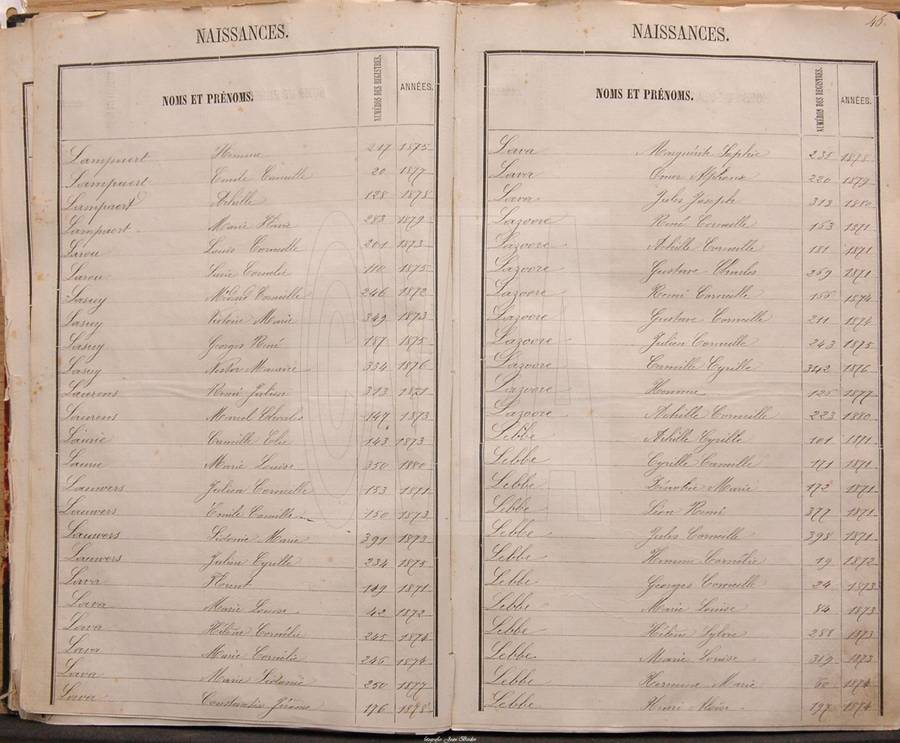 NAISSANCES.
NOMS ET PRÉNOMS. NUMÉROS DES REGISTRES. ANNÉES.
Lampaert Hemma 217 1875
Lampaert Emile Camille 20 1877
Lampaert Achille 128 1878
Lampaert Marie 283 1879
Larou Louis Cornille 201 1873
Larou Lucie Cornelie 110 1875
Lasuy Médard Cornille 246 1872
Lasuy Victoire Marie 349 1873
Lasuy Georges René 187 1875
Lasuy Nestor Maurice 334 1876
Laurens Henri Julien 313 1871
Laurens Marcel Charles 147 1873
Laurie Camille 143 1873
Laurie Marie Louise 350 1880
Lauwers Julien Cornille 153 1871
Lauwers Emile Camille 150 1873
Lauwers Sidonie Marie 391 1873
Lauwers Julien Cyrille 234 1875
Lava Florent 119 1871
Lava Marie Louise 42 1872
Lava Hélène Cornélie 245 1874
Lava Marie Cornélie 246 1874
Lava Marie Sidonie 250 1877
Lava Constantin Jérome 176 1878
46.
NAISSANCES.
NOMS ET PRÉNOMS. NUMÉROS DES REGISTRES. ANNÉES.
Lava Marguerite Sophie 235 1878
Lava Omer Alphonse 220 1879
Lava Jules Joseph 313 1880
Lazoore René Cornille 153 1871
Lazoore Achille Cornille 181 1871
Lazoore Gustave Charles 269 1871
Lazoore Remi Cornille 155 1874
Lazoore Gustave Cornille 211 1874
Lazoore Julien Cornille 243 1875
Lazoore Camille Cyrille 342 1876
Lazoore Hemma 125 1877
Lazoore Achille Cornille 223 1880
Lebbe Achille Cyrille 101 1871
Lebbe Cyrille Camille 171 1871
Lebbe Marie 172 1871
Lebbe Léon Remi 377 1871
Lebbe Jules Cornille 398 1871
Lebbe Hemma Cornélie 19 1872
Lebbe Georges Cornille 24 1873
Lebbe Marie Louise 84 1873
Lebbe 288 1873
Lebbe Marie Louise 319 1873
Lebbe Hermine Marie 60 1874
Lebbe Henri 197 1874